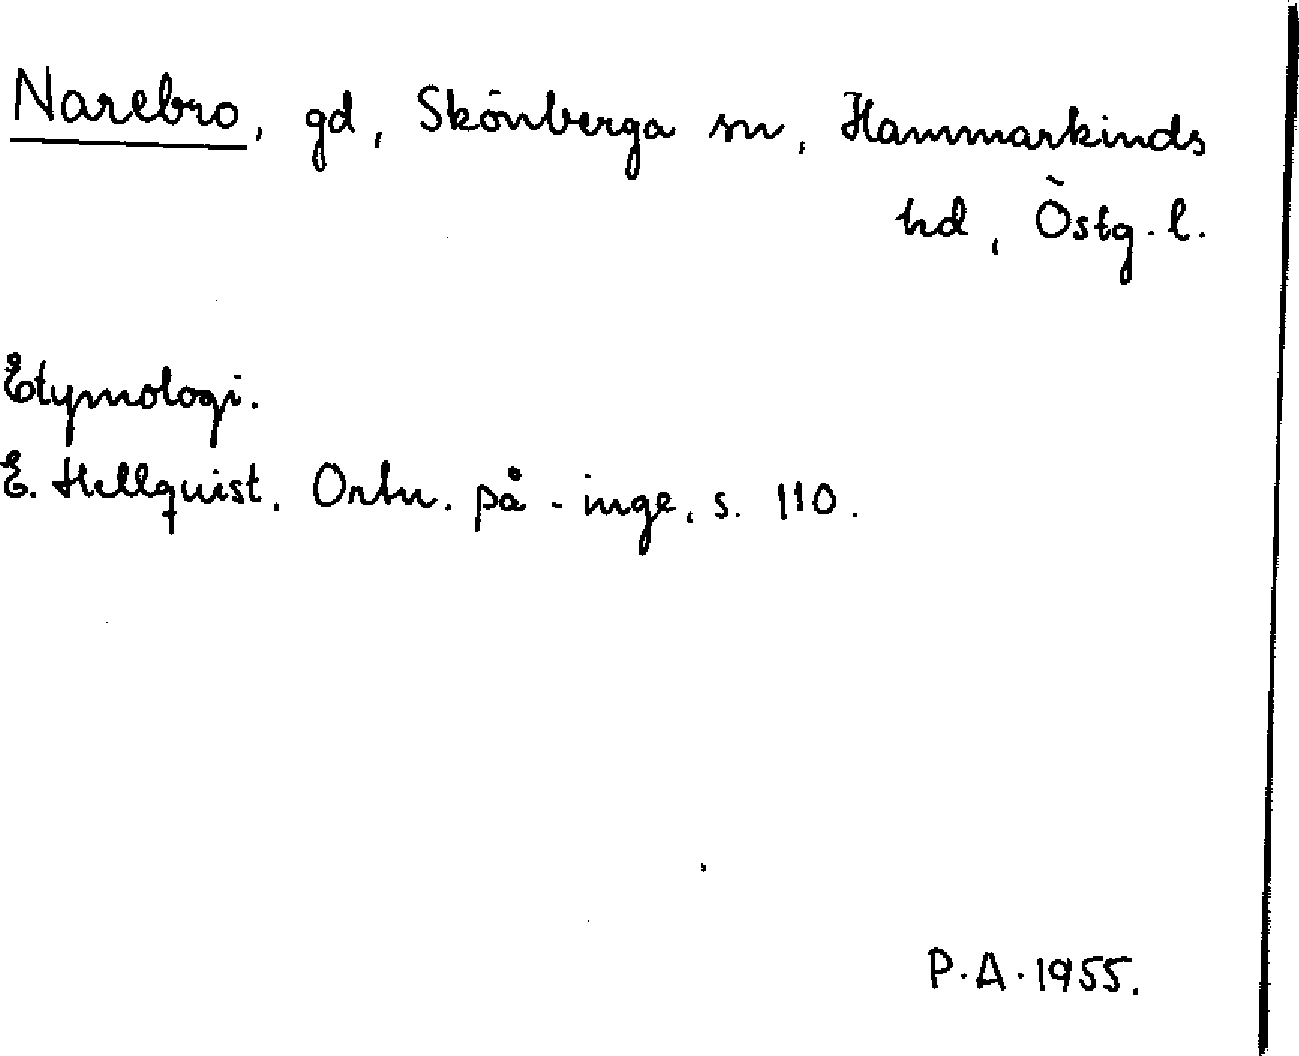 Narebro, gd, Skönberga sn, Hammarkinds
hd, Östg. l.
Etymologi.
E. Hellquist. Ortn. på -inge, s. 110.
P.A. 1955.